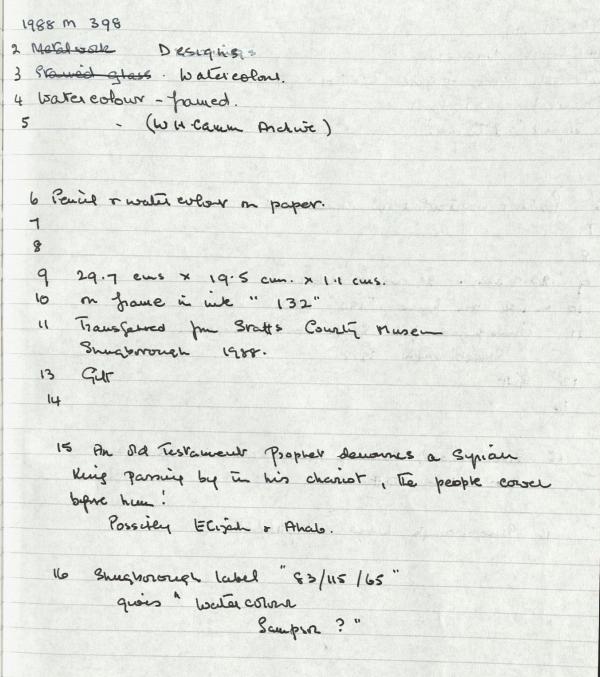 1988 M 398
2 Metalwork Designs
3 Stained glass. Watercolour.
4 Watercolour - framed.
5 - (W H Camm Archive)
6 Pencil & watercolour on paper.
7
8
9 29.7 cms x 19.5 cm. x 1.1 cms.
10 on frame in ink " 132"
11 Transferred from Staffs County Museum
Shugborough 1988.
13 Gift
14
15 An old Testament Prophet denounces a Syrian
King passing by in his chariot, the people cower
before him!
Possibly Elijah & Ahab.
16 Shugborough label "83/115/65"
gives " Watercolour
Sampson ?"